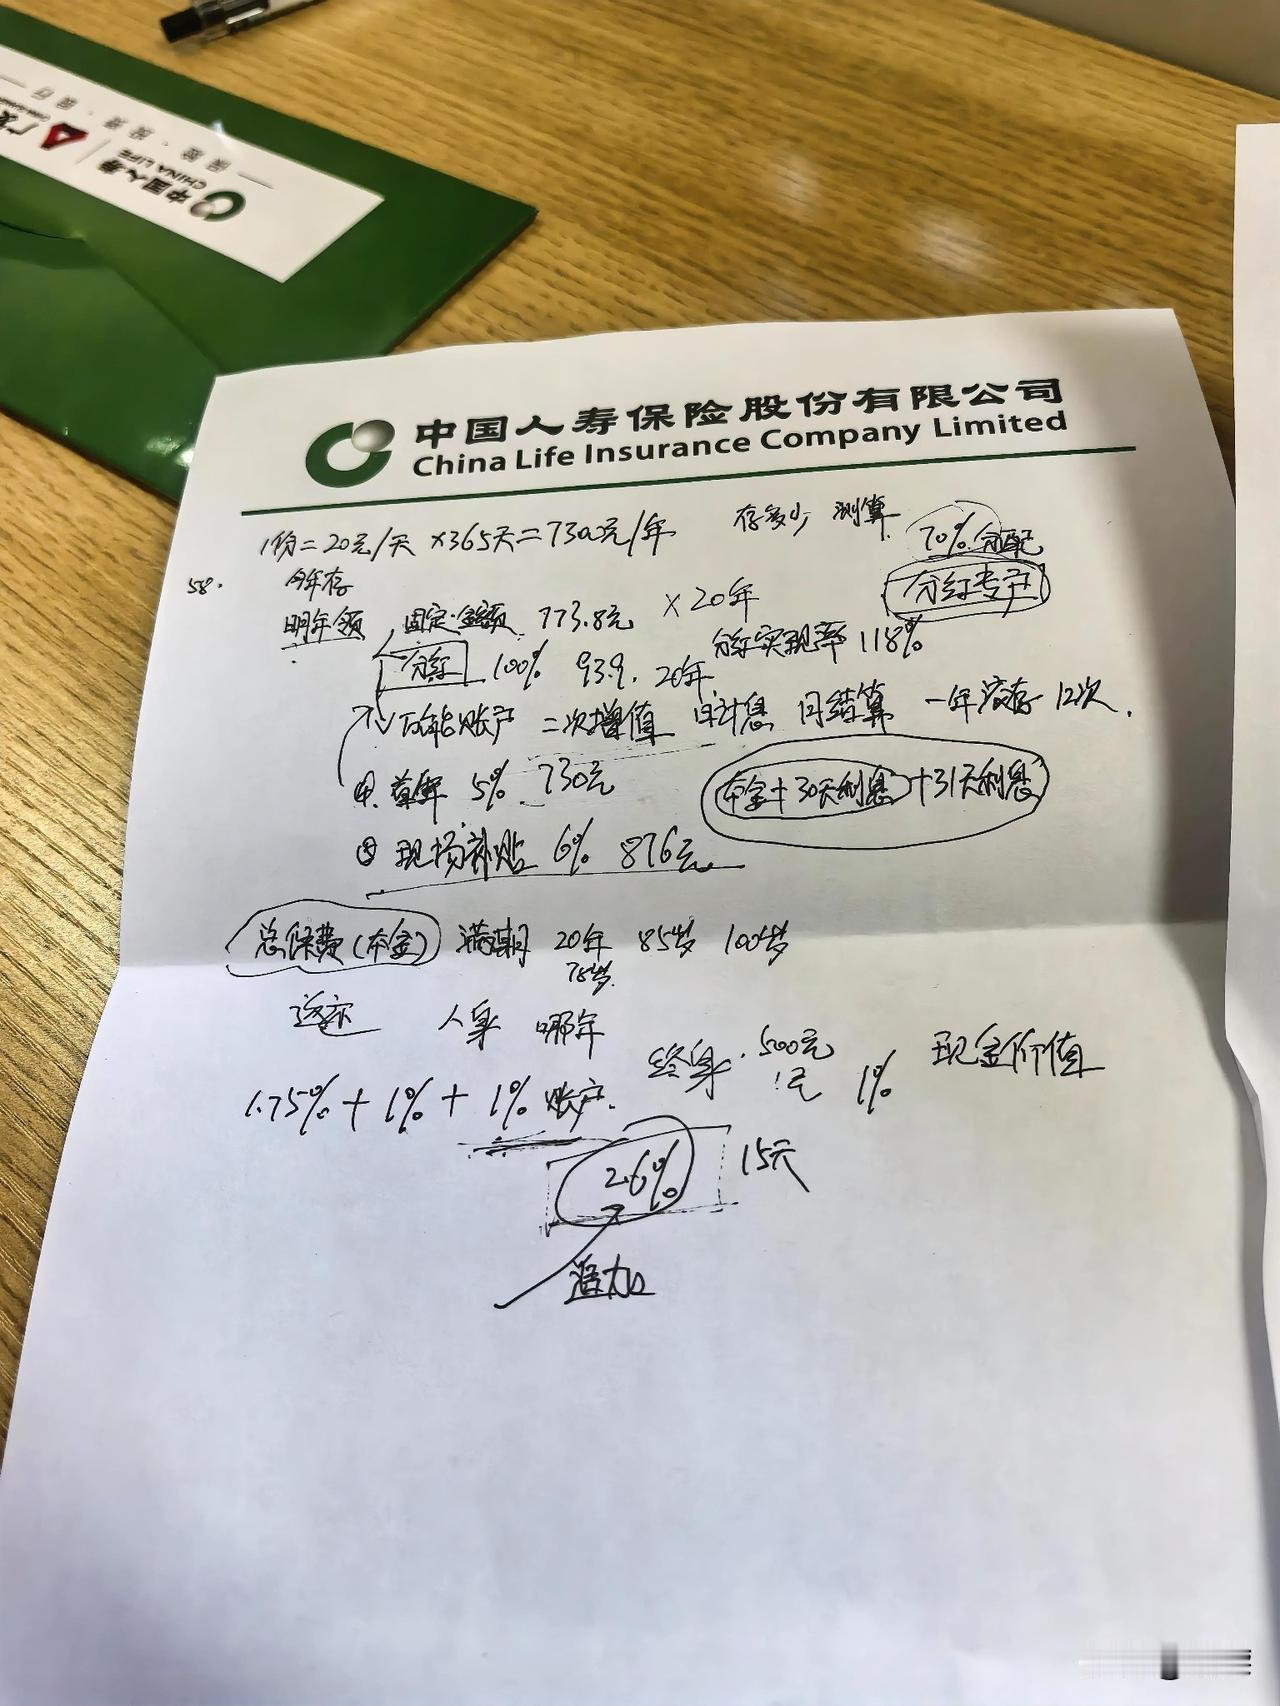 中国人寿
CHINA LIFE
保险·投资·银行
中国人寿保险股份有限公司
China Life Insurance Company Limited
1份=20元/天 ×365天=7300元/年 存多少 测算
70%分配
58. 今年存
分红专户
明年领 固定金额 773.8元 ×20年
分红 100% 93.9. 20年 分红实现率 118%
万能账户 二次增值 日计息 月结算 一年滚存12次.
5% 730元
本金+30天利息+31天利息
② 现场补贴 6% 876元
总保费(本金) 满期 20年 85岁 100岁
78岁
人身 哪年
终身 500元 现金价值
1元 1%
1.75%+1%+1% 账户.
2.6% 15天
追加